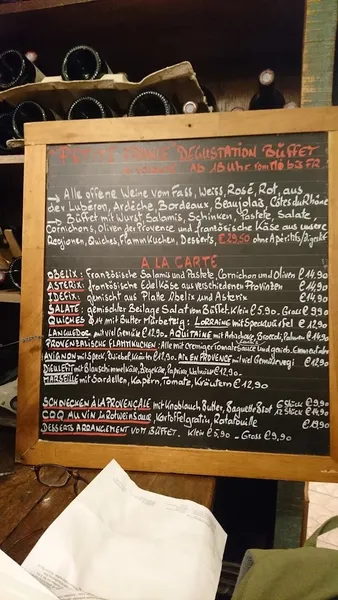 DEGUSTATION BÜFFET
Ab 18 Uhr vom Mo bis FR.
→ Alle offene Weine vom Fass, Weiss, Rosé, Rot, aus
der Lubéron, Ardèche, Bordeaux, Beaujolais, Côtes du Rhône
→ Büffet mit Wurst, Salamis, Schinken, Pastete, Salate,
Cornichons, Oliven der Provence und französische Käse aus unsere
Regionen, Quiches, Flammkuchen, Desserts, €29,50 ohne Apéritifs/Digestif
A LA CARTE
OBELIX: Französische Salamis und Pastete, Cornichon und Oliven €14,90
ASTERIX: französische Edel Käse aus verschiedenen Provinzen €14,90
IDEFIX: gemischt aus Platte Obelix und Asterix €14,90
SALATE: gemischter Beilage Salat vom Büffet. Klein €5,90. Gross €9,90
QUICHES mit Butter Mürbeteig: LORRAINE mit Speckwürfel €12,90
LANGUEDOC mit viel Gemüse €12,90. AQUITAINE mit Broccoli,
PROVENZALISCHE FLAMMKUCHEN: Alle mit cremiger Sauce und
AVIGNON mit Speck, Zwiebel, Kräuter €12,90. AIX EN PROVENCE mit viel Gemüse €12,90
DIEULEFIT mit Blauschimmelkäse, Ziegenkäse, Paprika, Walnüsse €12,90
MARSEILLE mit Sardellen, Kapern, Tomate, Kräutern €12,90
SCHNECKEN À LA PROVENÇALE mit Knoblauch Butter, Baguette Brot 6 Stück €9,90
12 Stück €14,90
COQ AU VIN in Rotwein Sauce, Kartoffelgratin, Ratatouille €19,90
DESSERTS ARRANGEMENT vom BÜFFET. Klein €5,90 - Gross €9,90